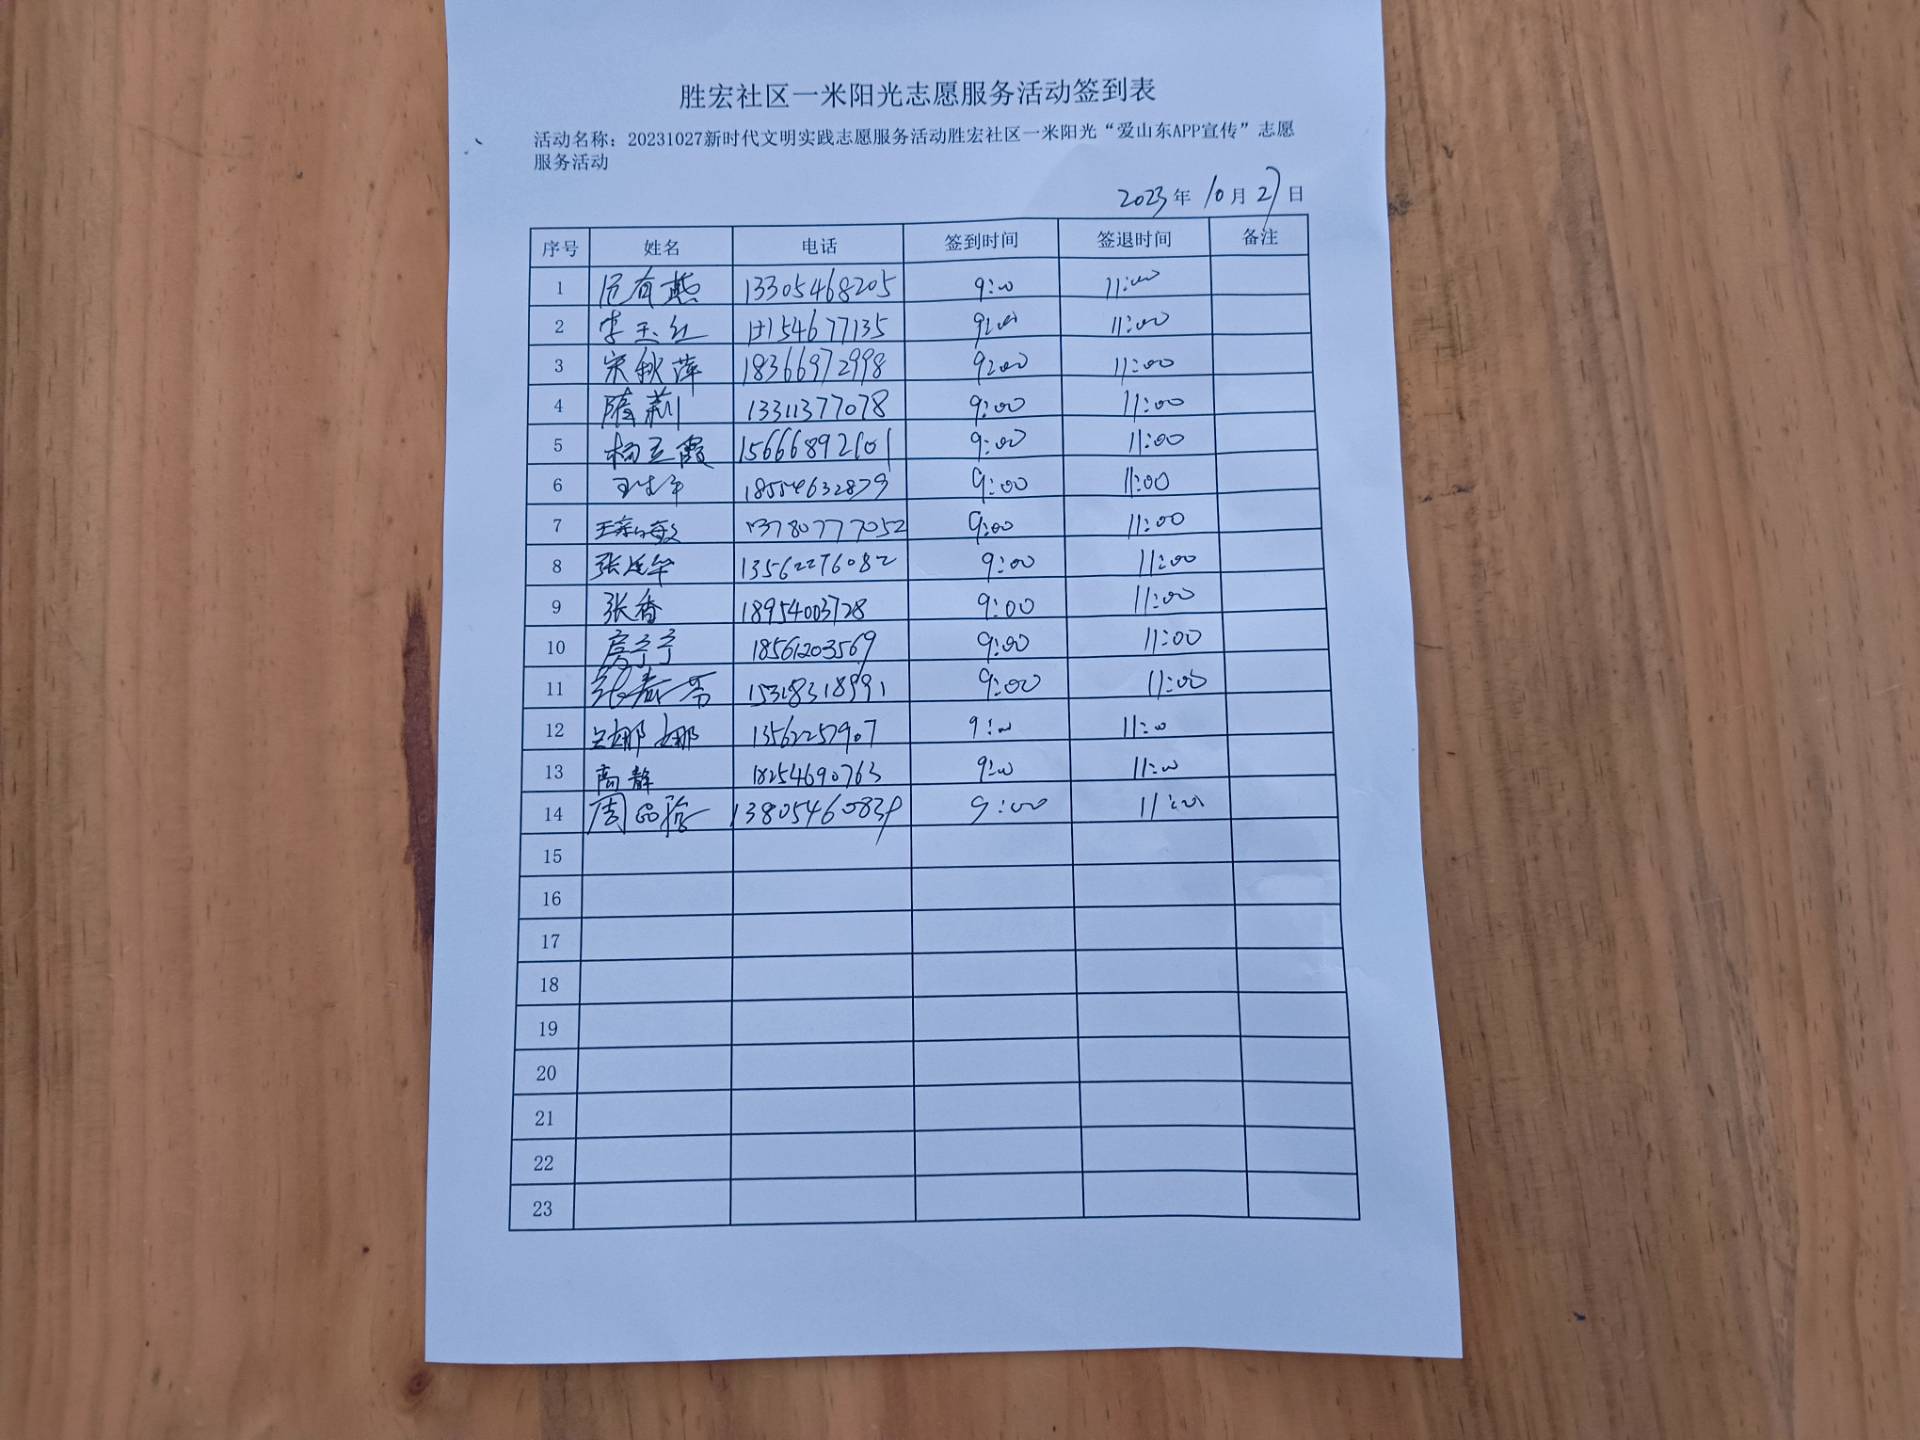 胜宏社区一米阳光志愿服务活动签到表
活动名称：20231027新时代文明实践志愿服务活动胜宏社区一米阳光“爱山东APP宣传”志愿
服务活动
2023年10月27日
序号 姓名 电话 签到时间 签退时间 备注
1 范有燕 13305468205 9:00 11:00
2 李玉红 54677135 9:00 11:00
3 宋秋萍 18366972998 9:00 11:00
4 隋莉 13311377078 9:00 11:00
5 杨立霞 15666892601 9:00 11:00
6 18554632879 9:00 11:00
7 13780777052 9:00 11:00
8 13562276082 9:00 11:00
9 张香 18954003728 9:00 11:00
10 房宁宁 18561203569 9:00 11:00
11 15318318991 9:00 11:00
12 娜娜 13562257907 9:00 11:00
13 高静 18254690763 9:00 11:00
14 周 13805460839 9:00 11:00
15
16
17
18
19
20
21
22
23